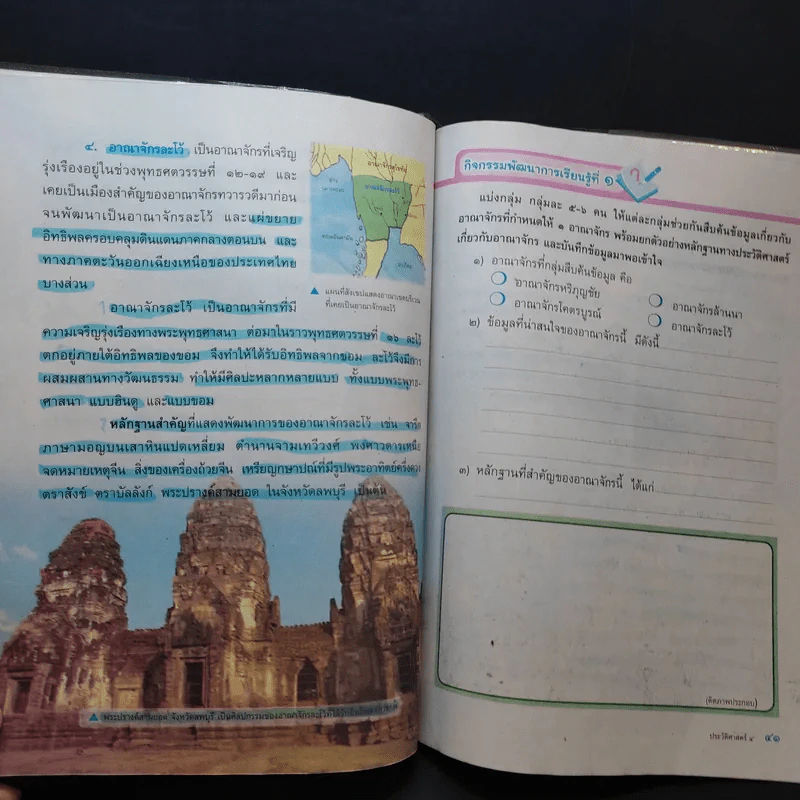 ๔. อาณาจักรละโว้ เป็นอาณาจักรที่เจริญ
รุ่งเรืองอยู่ในช่วงพุทธศตวรรษที่ ๑๒-๑๙ และ
เคยเป็นเมืองสำคัญของอาณาจักรทวารวดีมาก่อน
จนพัฒนาเป็นอาณาจักรละโว้ และแผ่ขยาย
อิทธิพลครอบคลุมดินแดนภาคกลางตอนบน และ
ทางภาคตะวันออกเฉียงเหนือของประเทศไทย
บางส่วน
อาณาจักรละโว้
▲ แผนที่สังเขปแสดงอาณาเขตบริเวณ
ที่เคยเป็นอาณาจักรละโว้
อาณาจักรละโว้ เป็นอาณาจักรที่มี
ความเจริญรุ่งเรืองทางพระพุทธศาสนา ต่อมาในราวพุทธศตวรรษที่ ๑๖ ละโว้
ตกอยู่ภายใต้อิทธิพลของขอม จึงทำให้ได้รับอิทธิพลจากขอม ละโว้จึงมีการ
ผสมผสานทางวัฒนธรรม ทำให้มีศิลปะหลากหลายแบบ ทั้งแบบพระพุทธ-
ศาสนา แบบฮินดู และแบบขอม
หลักฐานสำคัญที่แสดงพัฒนาการของอาณาจักรละโว้ เช่น จารึก
ภาษามอญบนเสาหินแปดเหลี่ยม ตำนานจามเทวีวงศ์ พงศาวดารเหนือ
จดหมายเหตุจีน สิ่งของเครื่องถ้วยจีน เหรียญกษาปณ์ที่มีรูปพระอาทิตย์ครึ่งดวง
ตราสังข์ ตราบัลลังก์ พระปรางค์สามยอด ในจังหวัดลพบุรี เป็นต้น
▲ พระปรางค์สามยอด จังหวัดลพบุรี เป็นศิลปกรรมของอาณาจักรละโว้ที่ได้รับ
กิจกรรมพัฒนาการเรียนรู้ที่ ๑
แบ่งกลุ่ม กลุ่มละ ๕-๖ คน ให้แต่ละกลุ่มช่วยกันสืบค้นข้อมูลเกี่ยวกับ
อาณาจักรที่กำหนดให้ ๑ อาณาจักร พร้อมยกตัวอย่างหลักฐานทางประวัติศาสตร์
เกี่ยวกับอาณาจักร และบันทึกข้อมูลมาพอเข้าใจ
๑) อาณาจักรที่กลุ่มสืบค้นข้อมูล คือ
อาณาจักรหริภุญชัย
อาณาจักรล้านนา
อาณาจักรโคตรบูรณ์
อาณาจักรละโว้
๒) ข้อมูลที่น่าสนใจของอาณาจักรนี้ มีดังนี้
๓) หลักฐานที่สำคัญของอาณาจักรนี้ ได้แก่
(ติดภาพประกอบ)
ประวัติศาสตร์ ๔ ๔๑